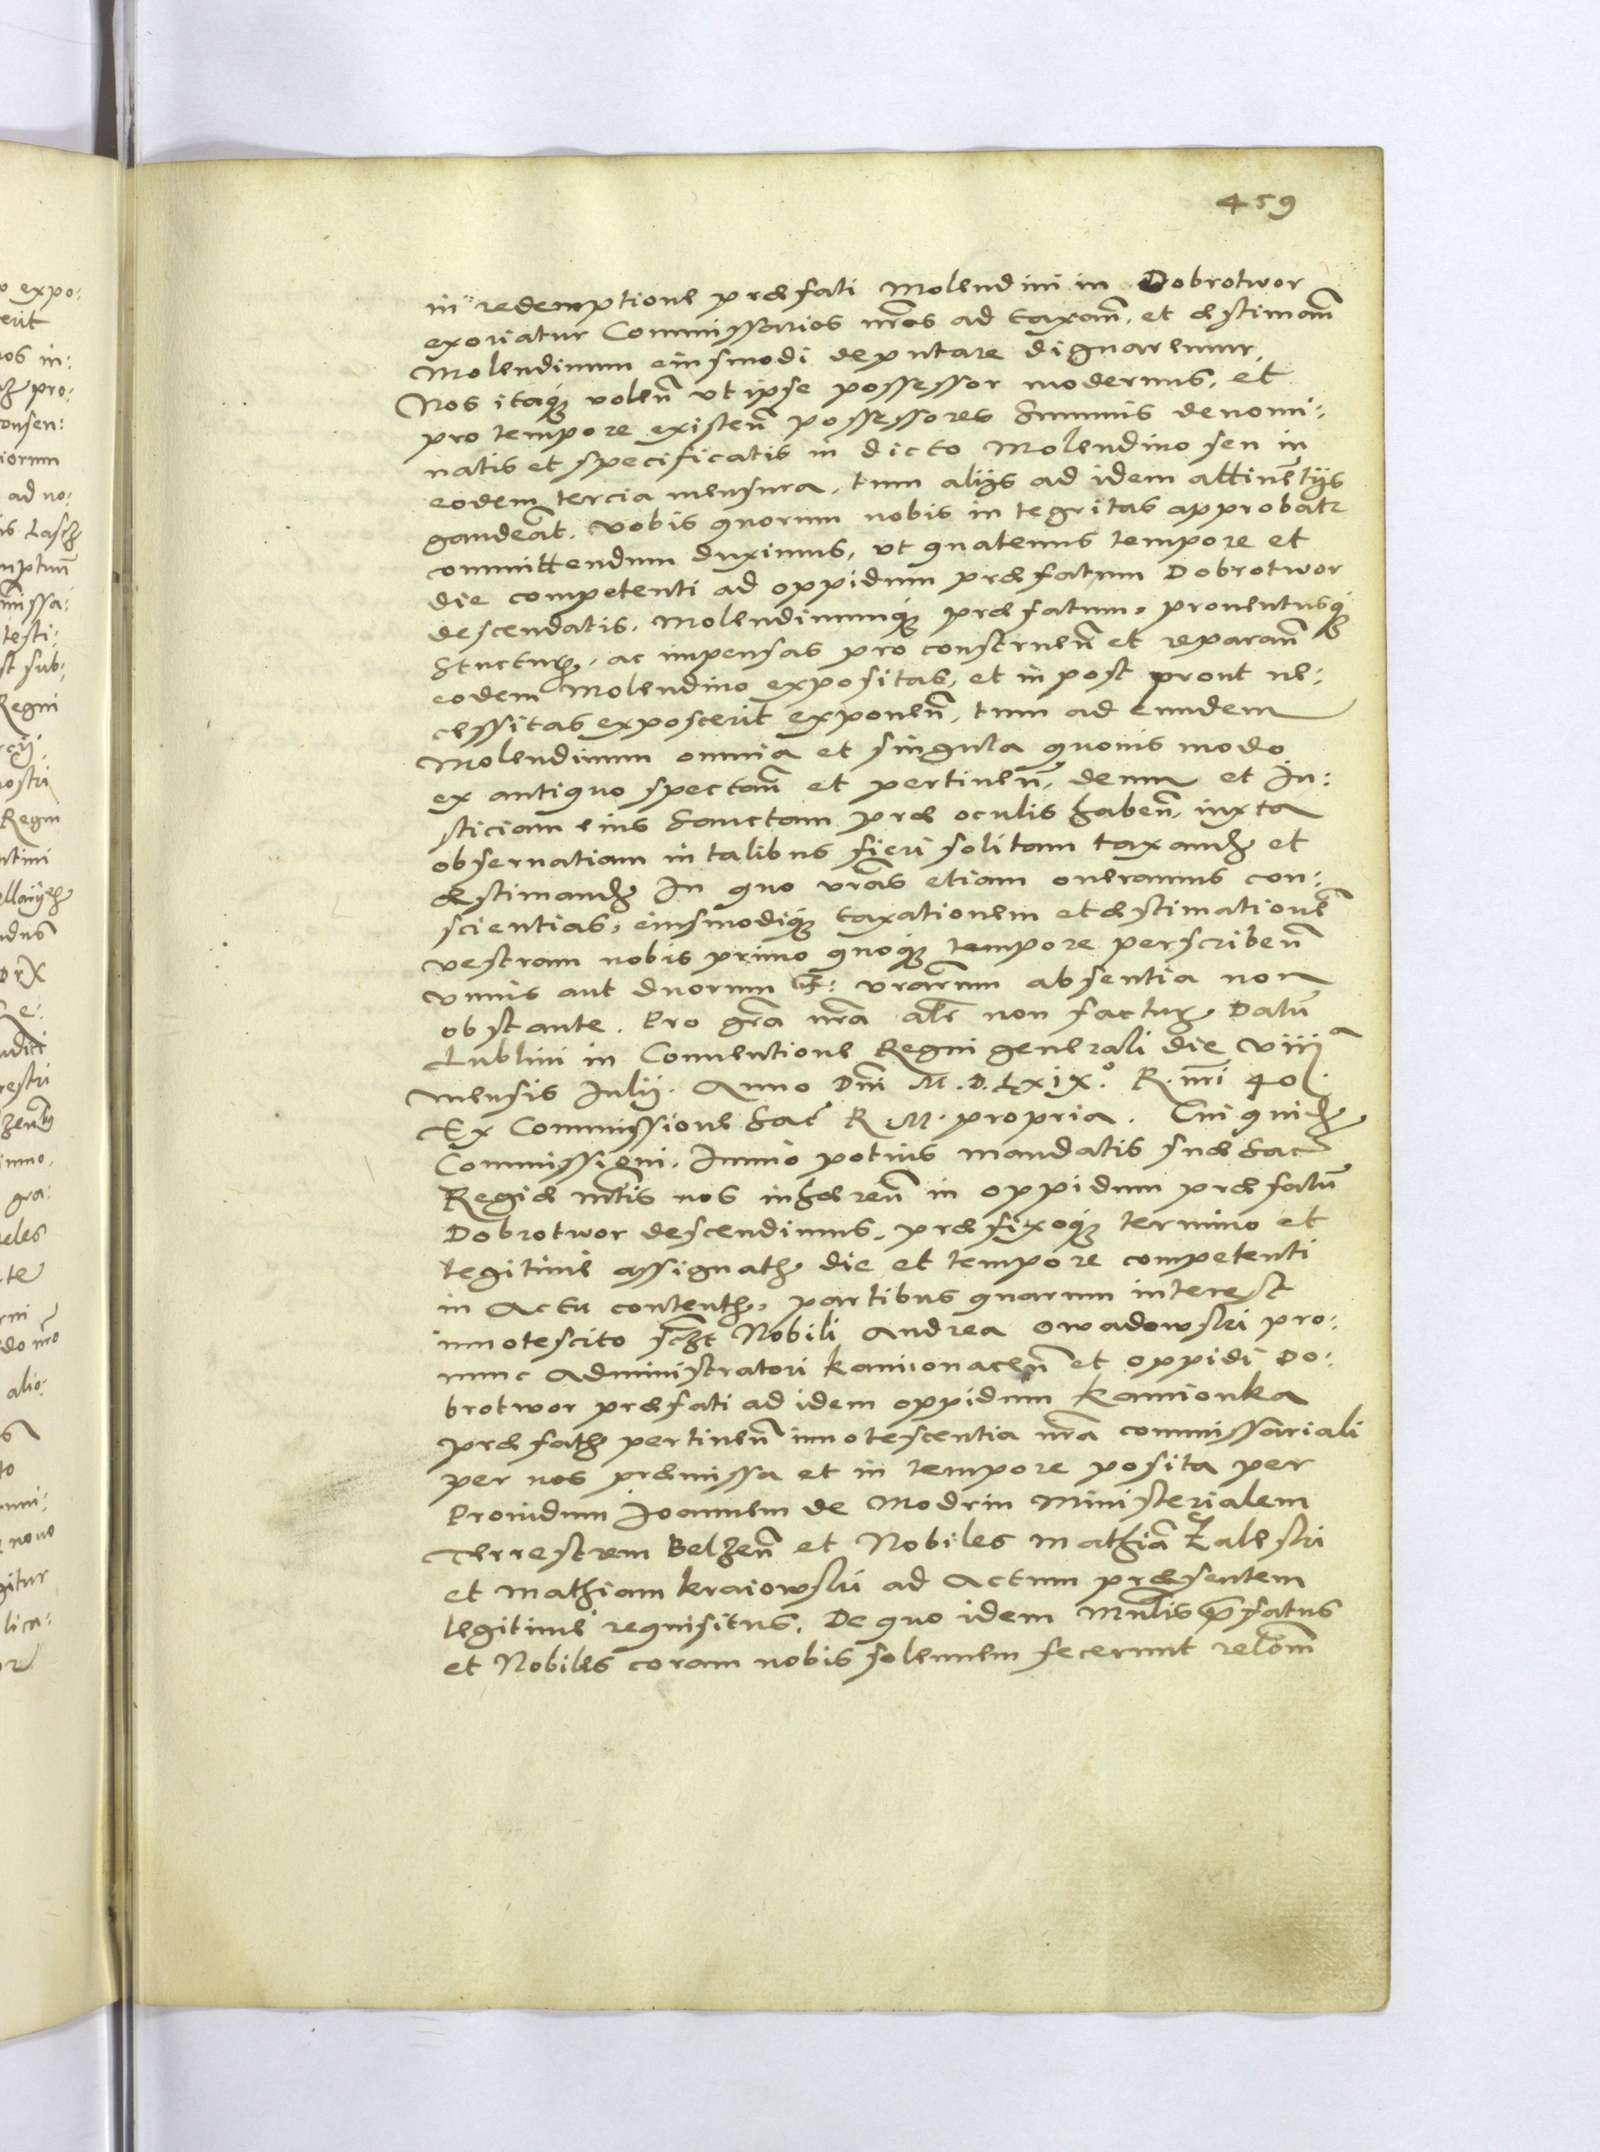 459
in redemptione præfati Molendini in Dobrotwor
exoriatur Commissarios nr̃os ad taxañ, et æstimañ
Molendinum eiusmodi deputare dignaremur,
Nos itaq; voleñ vt ipse possessor modernus, et
pro tempore existeñ possessores Summis denomi:
natis et specificatis in dicto Molendino seu in
eodem tercia mensura, tum alijs ad idem attineñtijs
gaudeãt. Vobis quorum nobis integritas approbatr
committendum duximus, vt quatenus tempore et
die competenti ad oppidum præfatum Dobrotwor
descendatis. Molendinumq; præfatum, prouentusq;
ac impensas pro construeñ et reparañ
eodem Molendino expositas, et in post prout ne:
cessitas exposcerit exponeñ, tum ad eundem
Molendinum omnia et singula quouis modo
ex antiquo spectañ et pertineñ, deum et Iu:
sticiam eius Sanctam præ oculis habeñ, iuxta
obseruatiam in talibus fieri solitam taxand et
æstimand In quo vr̃as etiam oneramus con:
scientias, eiusmodiq; taxationem et æstimationẽ
vestram nobis primo quoq; tempore perscribeñ
vnius aut duorum F: vr̃arum absentia non
obstante. Pro gr̃a nr̃a alr̃ non factur Datũ
Lublini in Conuentione Regni generali die viij
mensis Iulij. Anno Dñi M.D.Lxix.º R. nr̃i 40.
Ex Commissione Sac̃ R M. propria. Cui quid
Commissioni, Immo potius mandatis suæ Sac̃
Regiæ mt̃tis nos inhæreñ in oppidum præfatũ
Dobrotwor descendimus, præfixoq; termino et
legitime assignat die et tempore competenti
in Actu content, partibus quarum interest
innotescito Nobili Andrea Owadowski pro:
nunc Administratori Kamionaceñ et oppidi Do:
brotwor præfati ad idem oppidum Kamionka
præfat pertineñ innotescentia nr̃a commissariali
per nos præmissa et in tempore posita per
Prouidum Ioannem de Modrin Ministerialem
Terrestrem Belzeñ et Nobiles Mathiã Zaleski
et Mathiam Kraiowski ad Actum præsentem
legitime requisitus. De quo idem Mñlis p̃fatus
et Nobiles coram nobis solennem fecerunt relõm